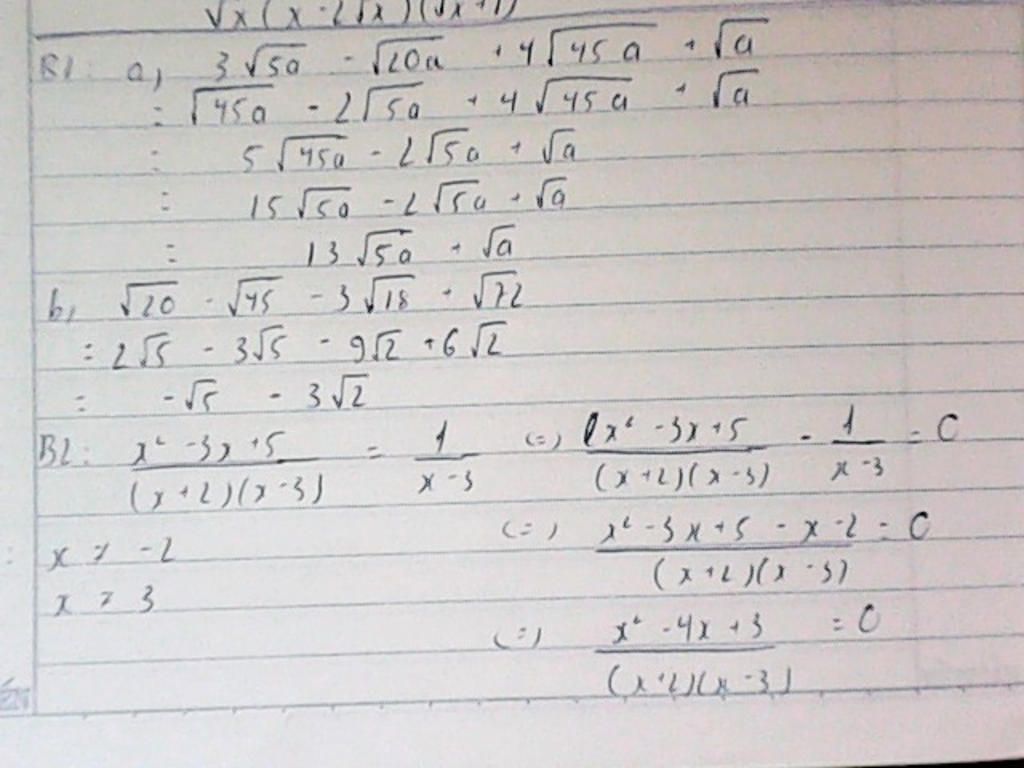 √x(x-2√x)(√x+1)
B1: a, 3√5a - √20a + 4√45a + √a
= √45a - 2√5a + 4√45a + √a
= 5√45a - 2√5a + √a
= 15√5a - 2√5a + √a
= 13√5a + √a
b, √20 - √45 - 3√18 + √72
= 2√5 - 3√5 - 9√2 + 6√2
= -√5 - 3√2
B2: (x² - 3x + 5)/((x+2)(x-3)) = 1/(x-3) (=) (x² - 3x + 5)/((x+2)(x-3)) - 1/(x-3) = 0
x ≠ -2 (=) (x² - 3x + 5 - x - 2)/((x+2)(x-3)) = 0
x ≠ 3
(=) (x² - 4x + 3)/((x+2)(x-3)) = 0